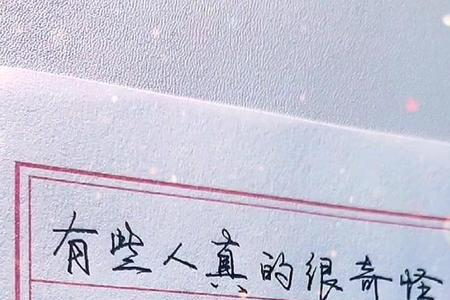 有些人真的很奇怪